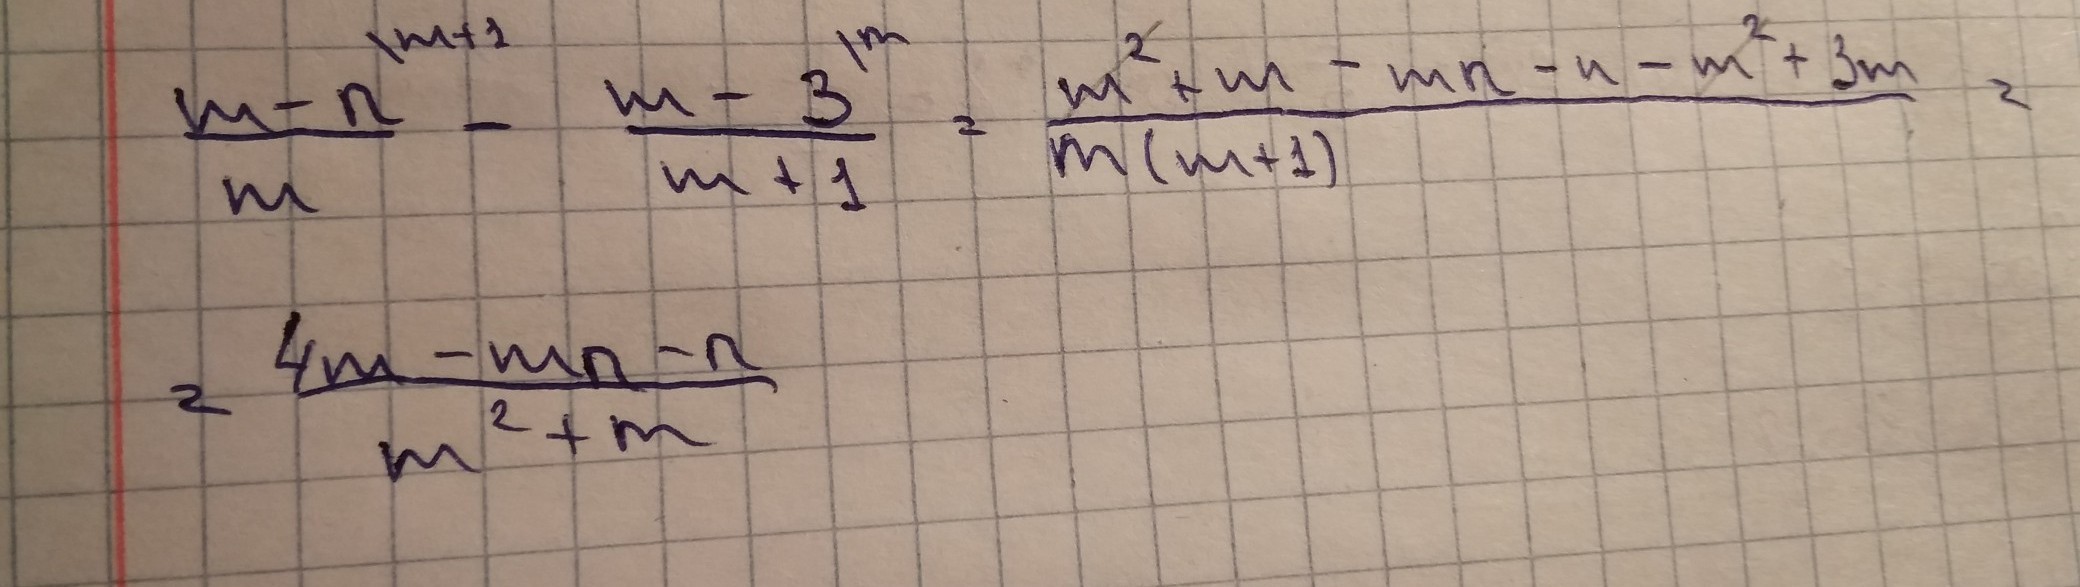 (m - n)/m \m+1 - (m - 3)/(m + 1) \m = (m² + m - mn - n - m² + 3m)/(m(m+1)) =
= (4m - mn - n)/(m² + m)